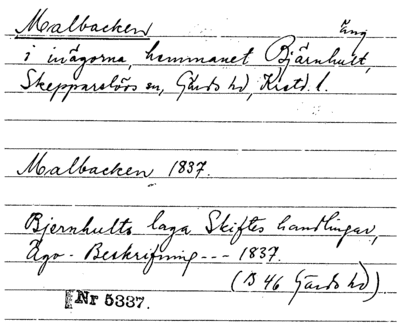 Malbacken Äng
i inägorna, hemmanet Bjärnhult,
Skepparslövs sn, Gärds hd, Krstd. l.
Malbacken 1837.
Bjernhults laga Skiftes handlingar,
Ego-Beskrifning --- 1837.
(B 46 Gärds hd)
Nr 5337.